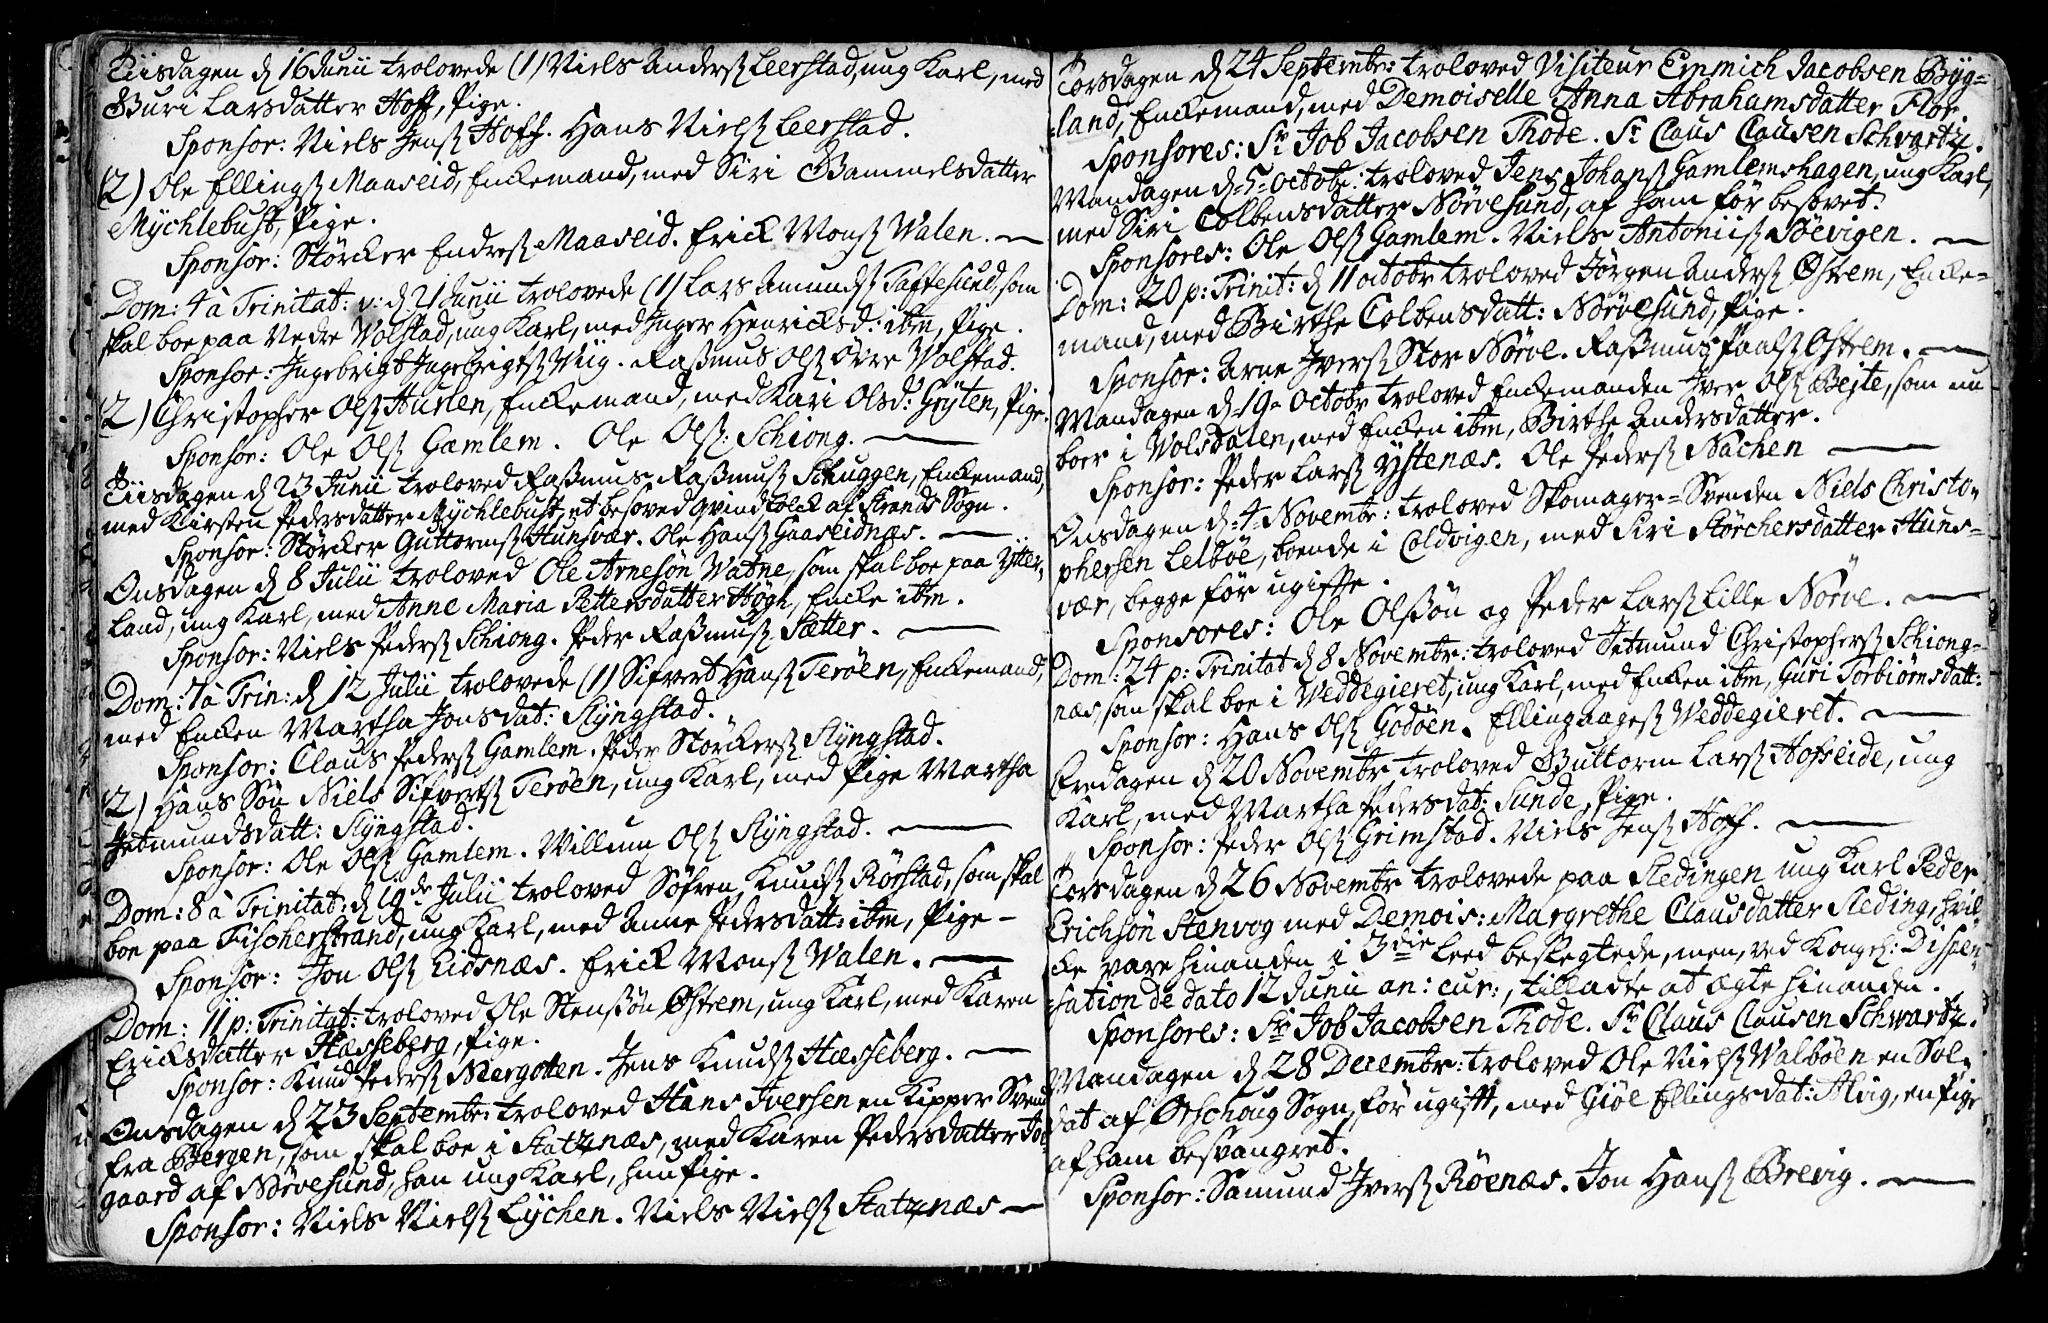 Tiisdagen d 16 Junii trolovede (1) Niels Anderss Leerstad, ung Karl, med
Guri Larsdatter Hoff, Pige.
Sponsor: Niels Jenss Hoff. Hans Nielss Leerstad.
(2) Ole Ellingss Maaseid, Enckemand, med Siri Gammelsdatter
Mychlebust, Pige.
Sponsor: Störcker Endress Maaseid. Erick Monss Walen.
Dom: 4 à Trinitat: d 21 Junii trolovede (1) Lars Amundss Taftesund, som
skal boe paa Nedre Volstad, ung Karl, med Inger Henricksd: ibm, Pige.
Sponsor: Ingebrigt Ingebrigtss Viig. Rasmus Olss Övre Volstad.
(2) Christopher Olss Huslen, Enckemand, med Kari Olsd: Gryten, Pige.
Sponsor: Ole Olss Gamlem. Ole Olss: Schiong.
Tiisdagen d 23 Junii troloved Rasmus Rasmuss Schuggen, Enckemand,
med Kirsten Pedersdatter Mychlebust, et besoved qvindfolck af Strands Sogn.
Sponsor: Störcker Guttormss Hunsvær. Ole Hanss Gaaseidnæs.
Onsdagen d 8 Julii troloved Ole Arnesön Vatne, som skal boe paa Ytter-
land, ung Karl, med Anne Maria Pettersdatter Högh, Encke ibm.
Sponsor: Niels Pederss Schiong. Peder Rasmuss Sætter.
Dom: 7 à Trin: d 12 Julii trolovede (1) Sifvert Hanss Teröen, Enckemand,
med Encken Martha Jonsdat: Slyngstad.
Sponsor: Claus Pederss Gamlem. Peder Störckerss Slyngstad.
(2) Hans Sön Niels Sifvertss Teröen, ung Karl, med Pige Martha
Jetmundsdatt: Slyngstad.
Sponsor: Ole Olss Gamlem. Willum Olss Slyngstad.
Dom: 8 à Trinitat: d 19de Julii troloved Söfren Knudss Rörstad, som skal
boe paa Fischerstrand, ung Karl, med Anne Pedersdatt: ibm, Pige
Sponsor: Jon Olss Eidsnæs. Erick Monss Walen.
Dom: 11 p: Trinitat: troloved Ole Stenssön Östrem, ung Karl, med Karen
Ericksdatter Hæsseberg, Pige.
Sponsor: Knud Pederss Mergotten. Jens Knudss Hæsseberg.
Onsdagen d 23 Septembr: troloved Hans Iversen en Kipper Svend
fra Bergen, som skal boe i Statznæs, med Karen Pedersdatter
gaard af Nörvesund, han ung Karl, hun Pige.
Sponsor: Niels Nielss Lychen. Niels Nielss Statznæs
Torsdagen d 24 Septembr: troloved Visiteur Emmich Jacobsen Byg-
land, Enckemand, med Demoiselle Anna Abrahamsdatter Flor
Sponsores: Sr Job Jacobsen Thode. Sr Claus Clausen Schvartz.
Mandagen d 5 Octobr: troloved Jens Johanss Gamlemshagen, ung Karl,
med Siri Colbensdatter Nörvesund, af ham för besovet.
Sponsores: Ole Olss Gamlem. Niels Antoniiss Söevigen.
Dom: 20 p: Trinit: d 11 Octobr troloved Jörgen Anderss Östrem, Encke-
mand, med Birthe Colbensdatt: Nörvesund, Pige.
Sponsor: Arne Iverss Stor Nörve. Rasmus Paalss Östrem.
Mandagen d 19 Octobr troloved Enckemanden Iver Olss Bejte, som nu
boer i Volsdalen, med Encken ibm, Birthe Andersdatter.
Sponsor: Peder Larss Ystenæs. Ole Pederss Nachen
Onsdagen d 4 Novembr: troloved Skomager-Svenden Niels Christo-
phersen Lelböe, boende i Coldvigen, med Siri Störchersdatter Huns-
vær, begge för ugifte.
Sponsores: Ole Olssön og Peder Larss Lille Nörve.
Dom: 24 p: Trinitat d 8 Novembr: troloved Jetmund Christopherss Schiong-
næs, som skal boe i Weddegieret, ung Karl, med Encken ibm, Guri Torbiörnsdatt:
Sponsor: Hans Olss Godöen. Elling Aagess Weddegieret.
Fredagen d 20 Novembr troloved Guttorm Larss Hofseide, ung
Karl, med Martha Pedersdat: Sunde, Pige.
Sponsor: Peder Olss Grimstad. Niels Jenss Hoff.
Torsdagen d 26 Novembr trolovede paa Sledingen ung Karl Peder
Erichsön Stenvog med Demois: Margrethe Clausdatter Sleding, hvil-
cke vare hinanden i 3die Leed beslegtede, men, ved Kongel: Dispen-
sation de dato 12 Junii an: cur:, tilladte at ægte hinanden.
Sponsores: Sr Job Jacobsen Thode. Sr Claus Clausen Schwartz.
Mandagen d 28 Decembr: troloved Ole Nielss Walböen en Sol-
dat af Örschoug Sogn, för ugift, med Giöe Ellingsdat: Alvig, en Pige
af ham besvangret.
Sponsor: Samund Iverss Röenæs. Jon Hanss Brevig.